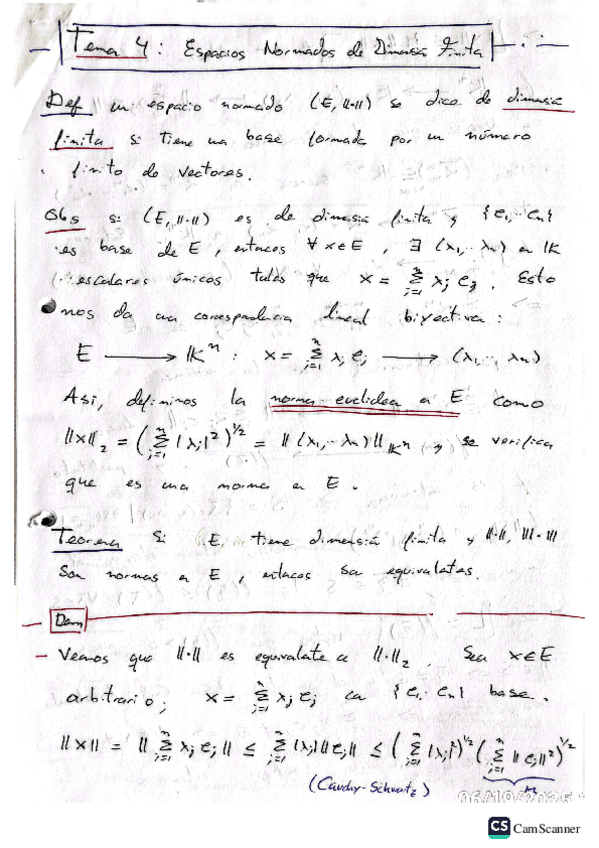 Tema 4: Espacios Normados de Dimensión Finita
Def un espacio normado (E, ||·||) se dice de dimensión
finita si tiene una base formada por un número
finito de vectores.
Obs si (E, ||·||) es de dimensión finita y {e₁, ·· eₙ}
es base de E, entonces ∀ x∈E, ∃ (λ₁, ·· λₙ) en 𝕂
escalares únicos tales que x = ∑ⱼ₌₁ⁿ λⱼ eⱼ. Esto
nos da una correspondencia lineal biyectiva:
E ⟶ 𝕂ⁿ : x = ∑ⱼ₌₁ⁿ λⱼ eⱼ ⟶ (λ₁, ··, λₙ)
Así, definimos la norma euclídea en E como
||x||₂ = (∑ⱼ₌₁ⁿ |λⱼ|²)^½ = ||(λ₁, ·· λₙ)||_𝕂ⁿ y se verifica
que es una norma en E.
Teorema Si E tiene dimensión finita y ||·||, |||·|||
Son normas en E, entonces son equivalentes.
Dem
— Veamos que ||·|| es equivalente a ||·||₂. Sea x∈E
arbitrario, x = ∑ⱼ₌₁ⁿ λⱼ eⱼ con {e₁ ·· eₙ} base.
||x|| = ||∑ⱼ₌₁ⁿ λⱼ eⱼ|| ≤ ∑ⱼ₌₁ⁿ |λⱼ| ||eⱼ|| ≤ (∑ⱼ₌₁ⁿ |λⱼ|²)^½ (∑ⱼ₌₁ⁿ ||eⱼ||²)^½
(Cauchy-Schwartz)
06/19/2025
CS CamScanner